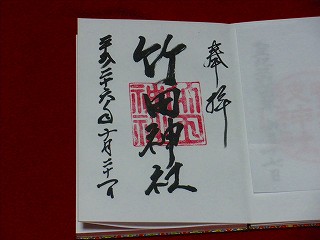 奉拝
竹田神社
平成二十六年十月二十一日